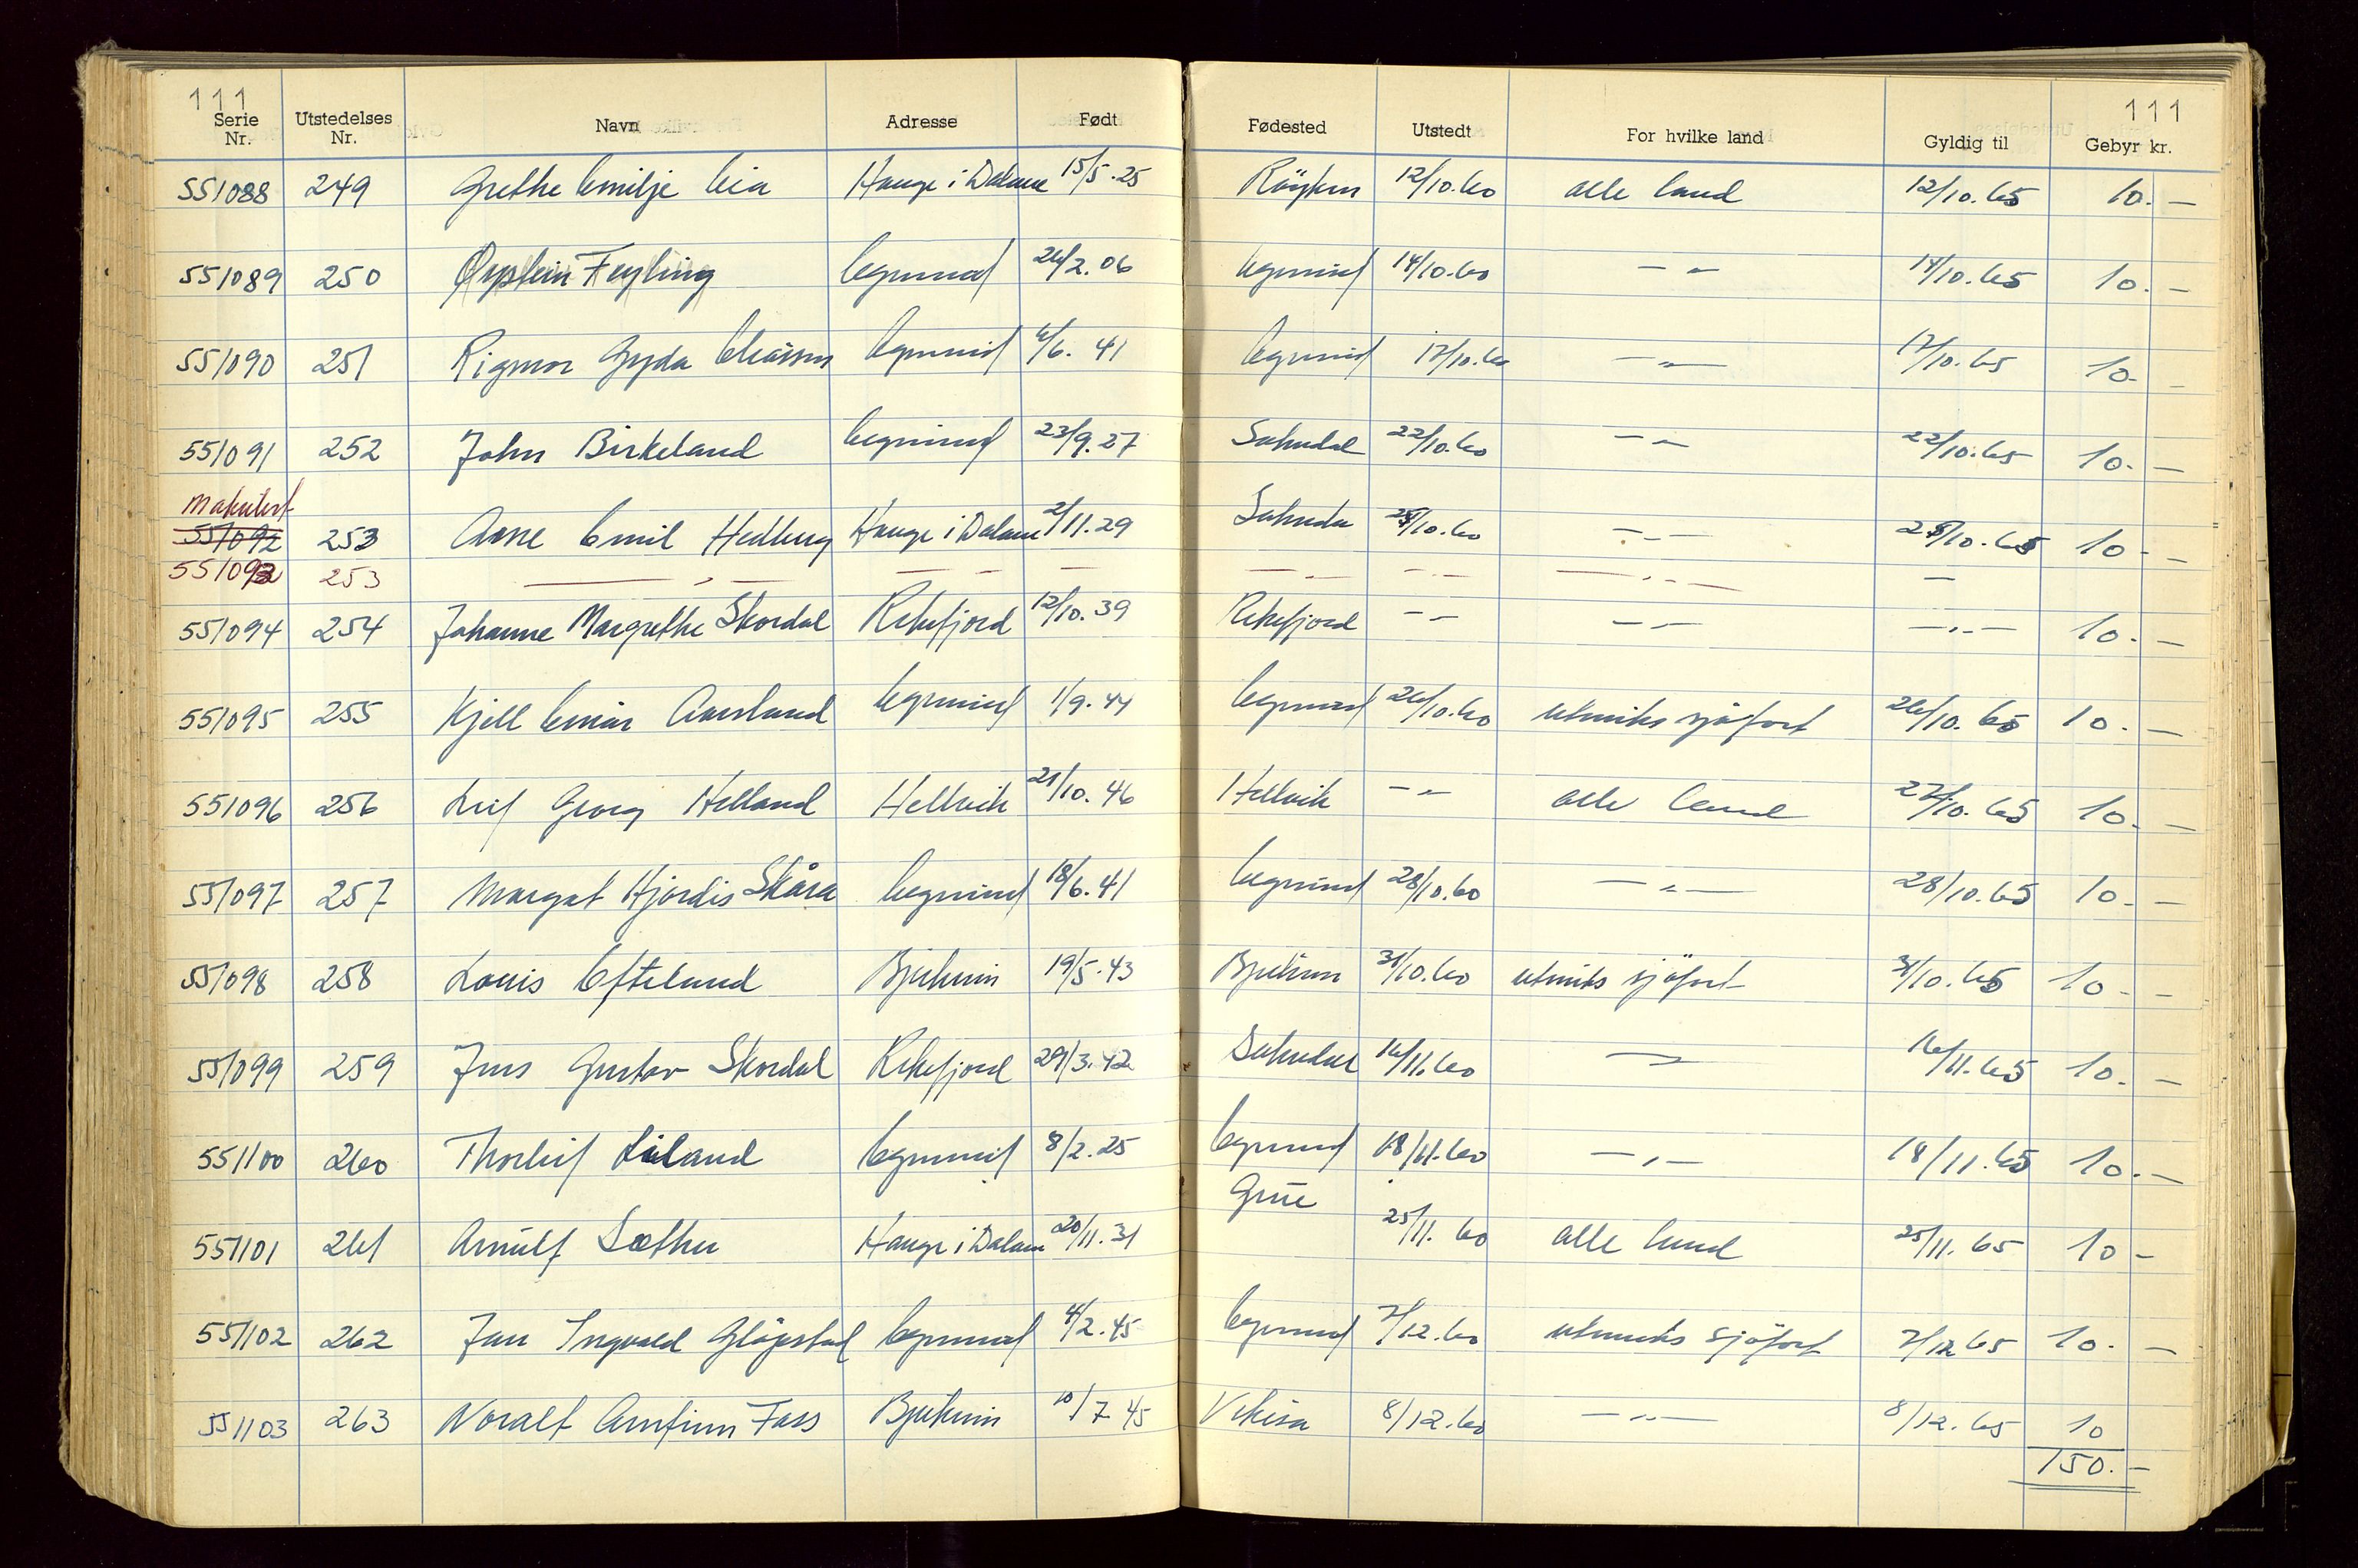 111 111
Serie Nr. Utstedelses Nr. Navn Adresse Født Fødested Utstedt For hvilke land Gyldig til Gebyr kr.
551088 249 Grethe Emilje Eia Hauge i Dalane 15/5.25 Röyken 12/10.60 alle land 12/10.65 10.-
551089 250 Øystein Feyling Egersund 26/2.06 Egersund 14/10.60 -"- 14/10.65 10.-
551090 251 Rigmor Gyda Eliassen Egersund 6/6.41 Egersund 17/10.60 -"- 17/10.65 10.-
551091 252 John Birkeland Egersund 23/9.27 Sokndal 22/10.60 -"- 22/10.65 10.-
Makulert
551092 253 Arne Emil Hedberg Hauge i Dalane 2/11.29 Sokndal /10.60 -"- /10.65 10-
551093 253 -"- -"- - -"- -"- -"- -
551094 254 Johanne Margrethe Skordal Rekefjord 12/10.39 Rekefjord -"- -"- -"- 10.-
551095 255 Kjell Einar Aarsland Egersund 1/9.44 Egersund 26/10.60 utenriks sjöfart 26/10.65 10.-
551096 256 Leif Georg Helland Hellvik 21/10.46 Hellvik -"- alle land /10.65 10.-
551097 257 Margot Hjördis Skåra Egersund 18/6.41 Egersund 28/10.60 -"- 28/10.65 10.-
551098 258 Louis Efteland Bjerkreim 19/5.43 Bjerkreim 31/10.60 utenriks sjöfart 31/10.65 10.-
551099 259 Jens Gustav Skordal Rekefjord 29/3.42 Sokndal 16/11.60 -"- 16/11.65 10.-
551100 260 Thorleif Eiland Egersund 8/2.25 Egersund 18/11.60 -"- 18/11.65 10.-
551101 261 Arnulf Sæther Hauge i Dalane 20/11.31 Grue 25/11.60 alle land 25/11.65 10-
551102 262 Jan Ingvald Glöpstad Egersund 4/2.45 Egersund 7/12.60 utenriks sjöfart 7/12 65 10.-
551103 263 Noralf Arnfinn Foss Bjerkreim 10/7 45 Vikesa 8/12.60 -"- 8/12.65 10
150.-